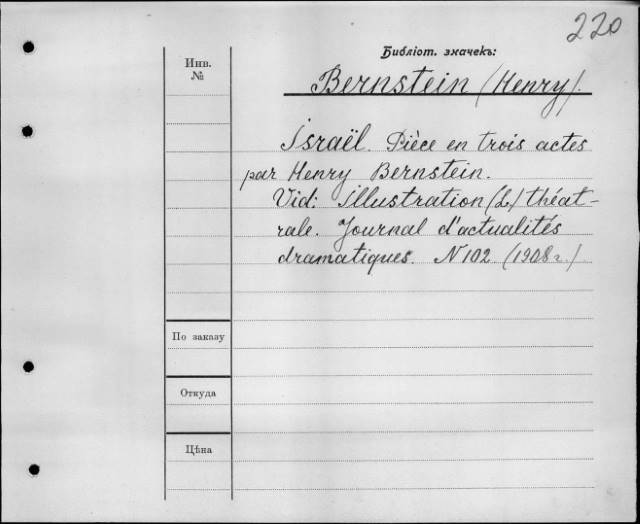 220
Библіот. значекъ:
Инв. №
Bernstein (Henry).
Israël. Pièce en trois actes
par Henry Bernstein.
Vid: Illustration (L') théat-
rale. Journal d'actualités
dramatiques. N 102 (1908 г.)
По заказу
Откуда
Цѣна